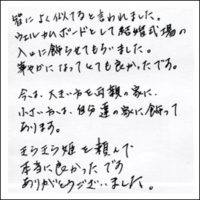 皆に良く似てると言われました。
ウェルカムボードとして結婚式場の
入口に飾らせてもらいました。
華やかになってとても良かったです。
今は、大きい方を両親の家に、
小さい方は、自分達の家に飾って
あります。
きらきら姫を頼んで
本当に良かったです
ありがとうございました。